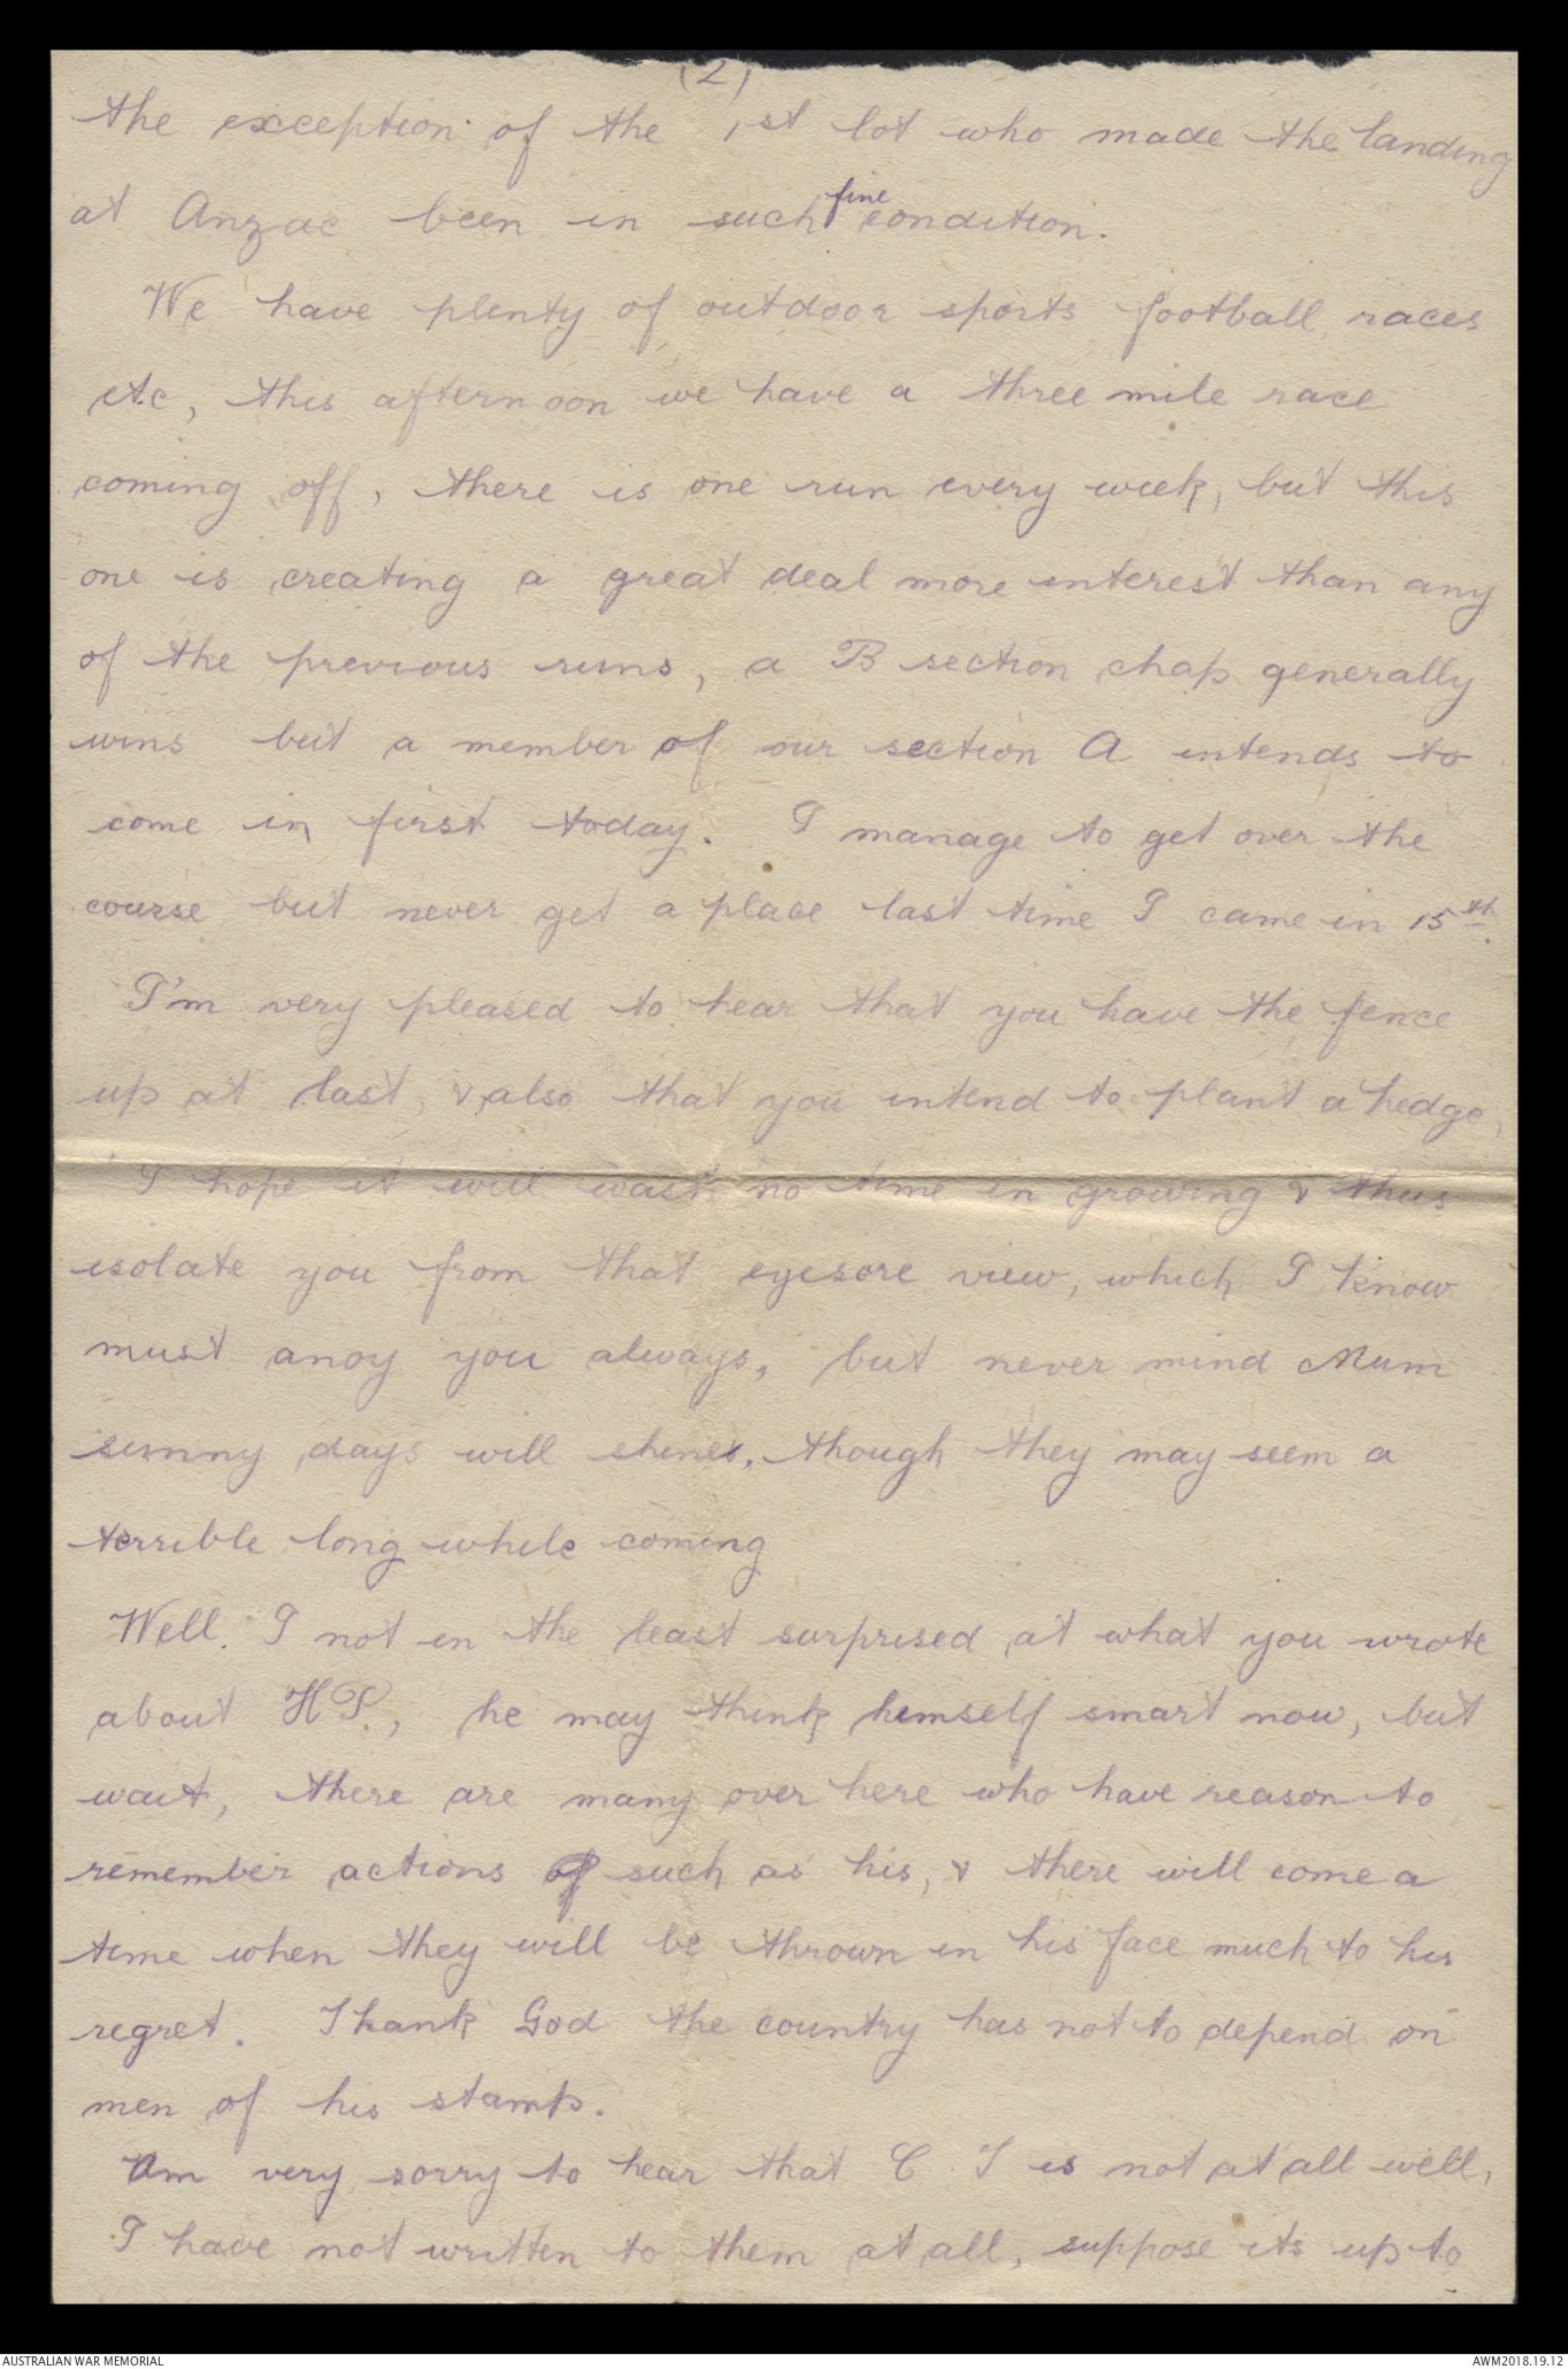 (2)
the exception of the 1st lot who made the landing
at Anzac been in such fine condition.
We have plenty of outdoor sports football, races
etc, this afternoon we have a three mile race
coming off, there is one run every week, but this
one is creating a great deal more interest than any
of the previous runs, a B section chap generally
wins but a member of our section A intends to
come in first today. I manage to get over the
course but never get a place last time I came in 15th.
I'm very pleased to hear that you have the fence
up at last, & also that you intend to plant a hedge,
I hope it will waste no time in growing & thus
isolate you from that eyesore view, which I know
must anoy you always, but never mind Mum
sunny days will shine, though they may seem a
terrible long while coming
Well. I not in the least surprised at what you wrote
about H, he may think himself smart now, but
wait, there are many over here who have reason to
remember actions of such as his, & there will come a
time when they will be thrown in his face much to his
regret. Thank God the country has not to depend on
men of his stamp.
Am very sorry to hear that C is not at all well,
I have not written to them at all, suppose its up to
AUSTRALIAN WAR MEMORIAL
AWM2018.19.12